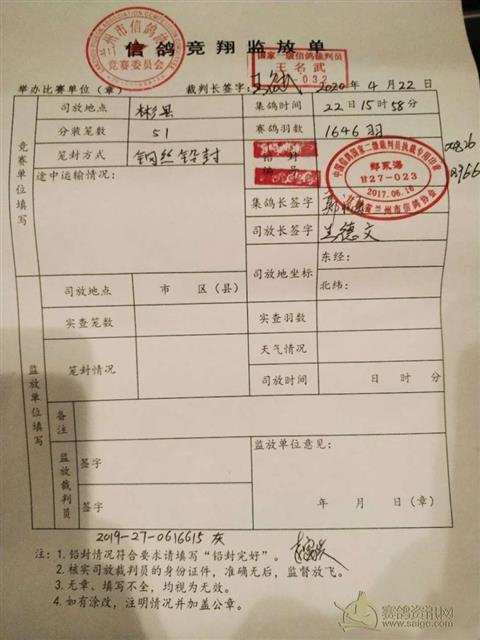 信鸽竞翔监放单
州市信鸽
竞赛委员会
国家一级信鸽裁判员
王名武
032
举办比赛单位（章） 裁判长签字: 2020年4月22日
竞赛单位填写
司放地点 彬县 集鸽时间 22日15时58分
分装笼数 51 赛鸽羽数 1646羽
笼封方式 钢丝铅封
中国信鸽国家二级裁判员执裁专用印章
甘27-023
2017.06.16
兰州市信鸽协会
途中运输情况:
集鸽长签字
司放长签字 兰德文
司放地坐标 东经:
北纬:
监放单位填写
司放地点 市 区（县）
实查笼数 实查羽数
笼封情况 天气情况
司放时间 日 时 分
备注
监放裁判员 签字
签字
监放单位意见:
年 月 日（章）
2019-27-0616615 灰
注: 1.铅封情况符合要求请填写“铅封完好”。
2.核实司放裁判员的身份证件，准确无后，监督放飞。
3.无章、填写不全，均视为无效。
4.如有涂改，注明情况并加盖公章。
赛鸽资讯网
www.saige.com